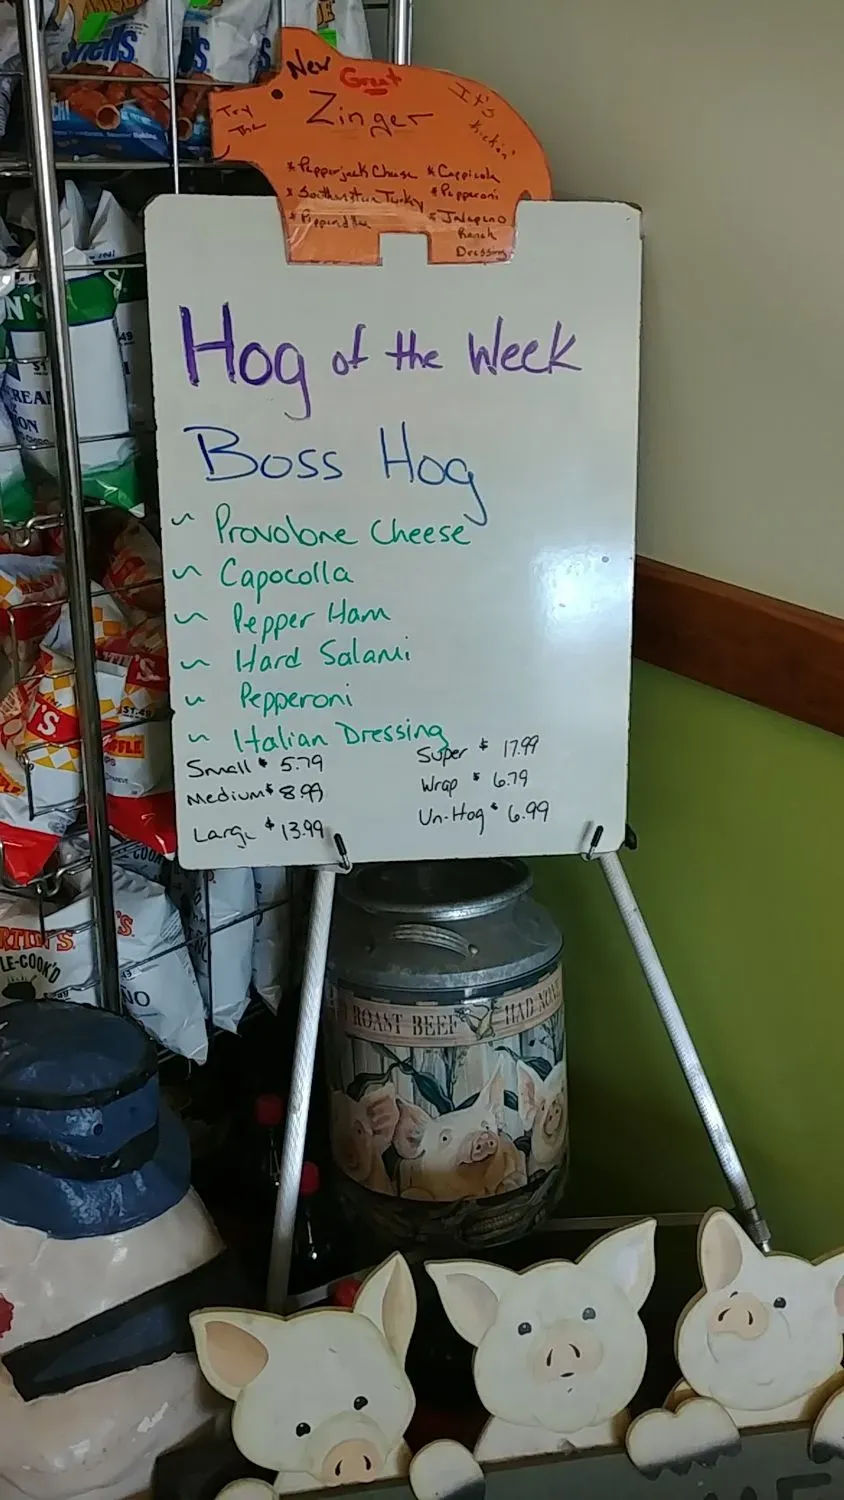 Shells
New
Great
Try
The
Zinger
It's
Kickin'
* Pepperjack Cheese
* Southwestern Turkey
* Cappicola
* Pepperoni
* Jalapeno
Ranch
Dressing
Hog of the Week
Boss Hog
~ Provolone Cheese
~ Capocolla
~ Pepper Ham
~ Hard Salami
~ Pepperoni
~ Italian Dressing
Small $ 5.79
Medium $ 8.99
Large $ 13.99
Super $ 17.99
Wrap $ 6.79
Un-Hog $ 6.99
ROAST BEEF
HAD NONE
N'S
'S
RTIN'S
LE-COOK'D